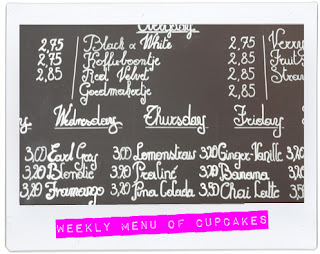 Everyday
2,75 Black & White 2,75 Verry
2,75 Koffieboontje 2,85 Fruits
2,85 Red Velvet 2,85 Straw
Goedmakertje 2,85
y Wednesday Thursday Friday
3,00 Earl Grey 3,00 Lemonstraws 3,20 Ginger-Vanille 3,
3,20 Blondie 3,20 Praliné 3,20 Banana 3,20
3,20 Framango 3,20 Pina Colada 3,00 Chai Latte 3,
WEEKLY MENU OF CUPCAKES